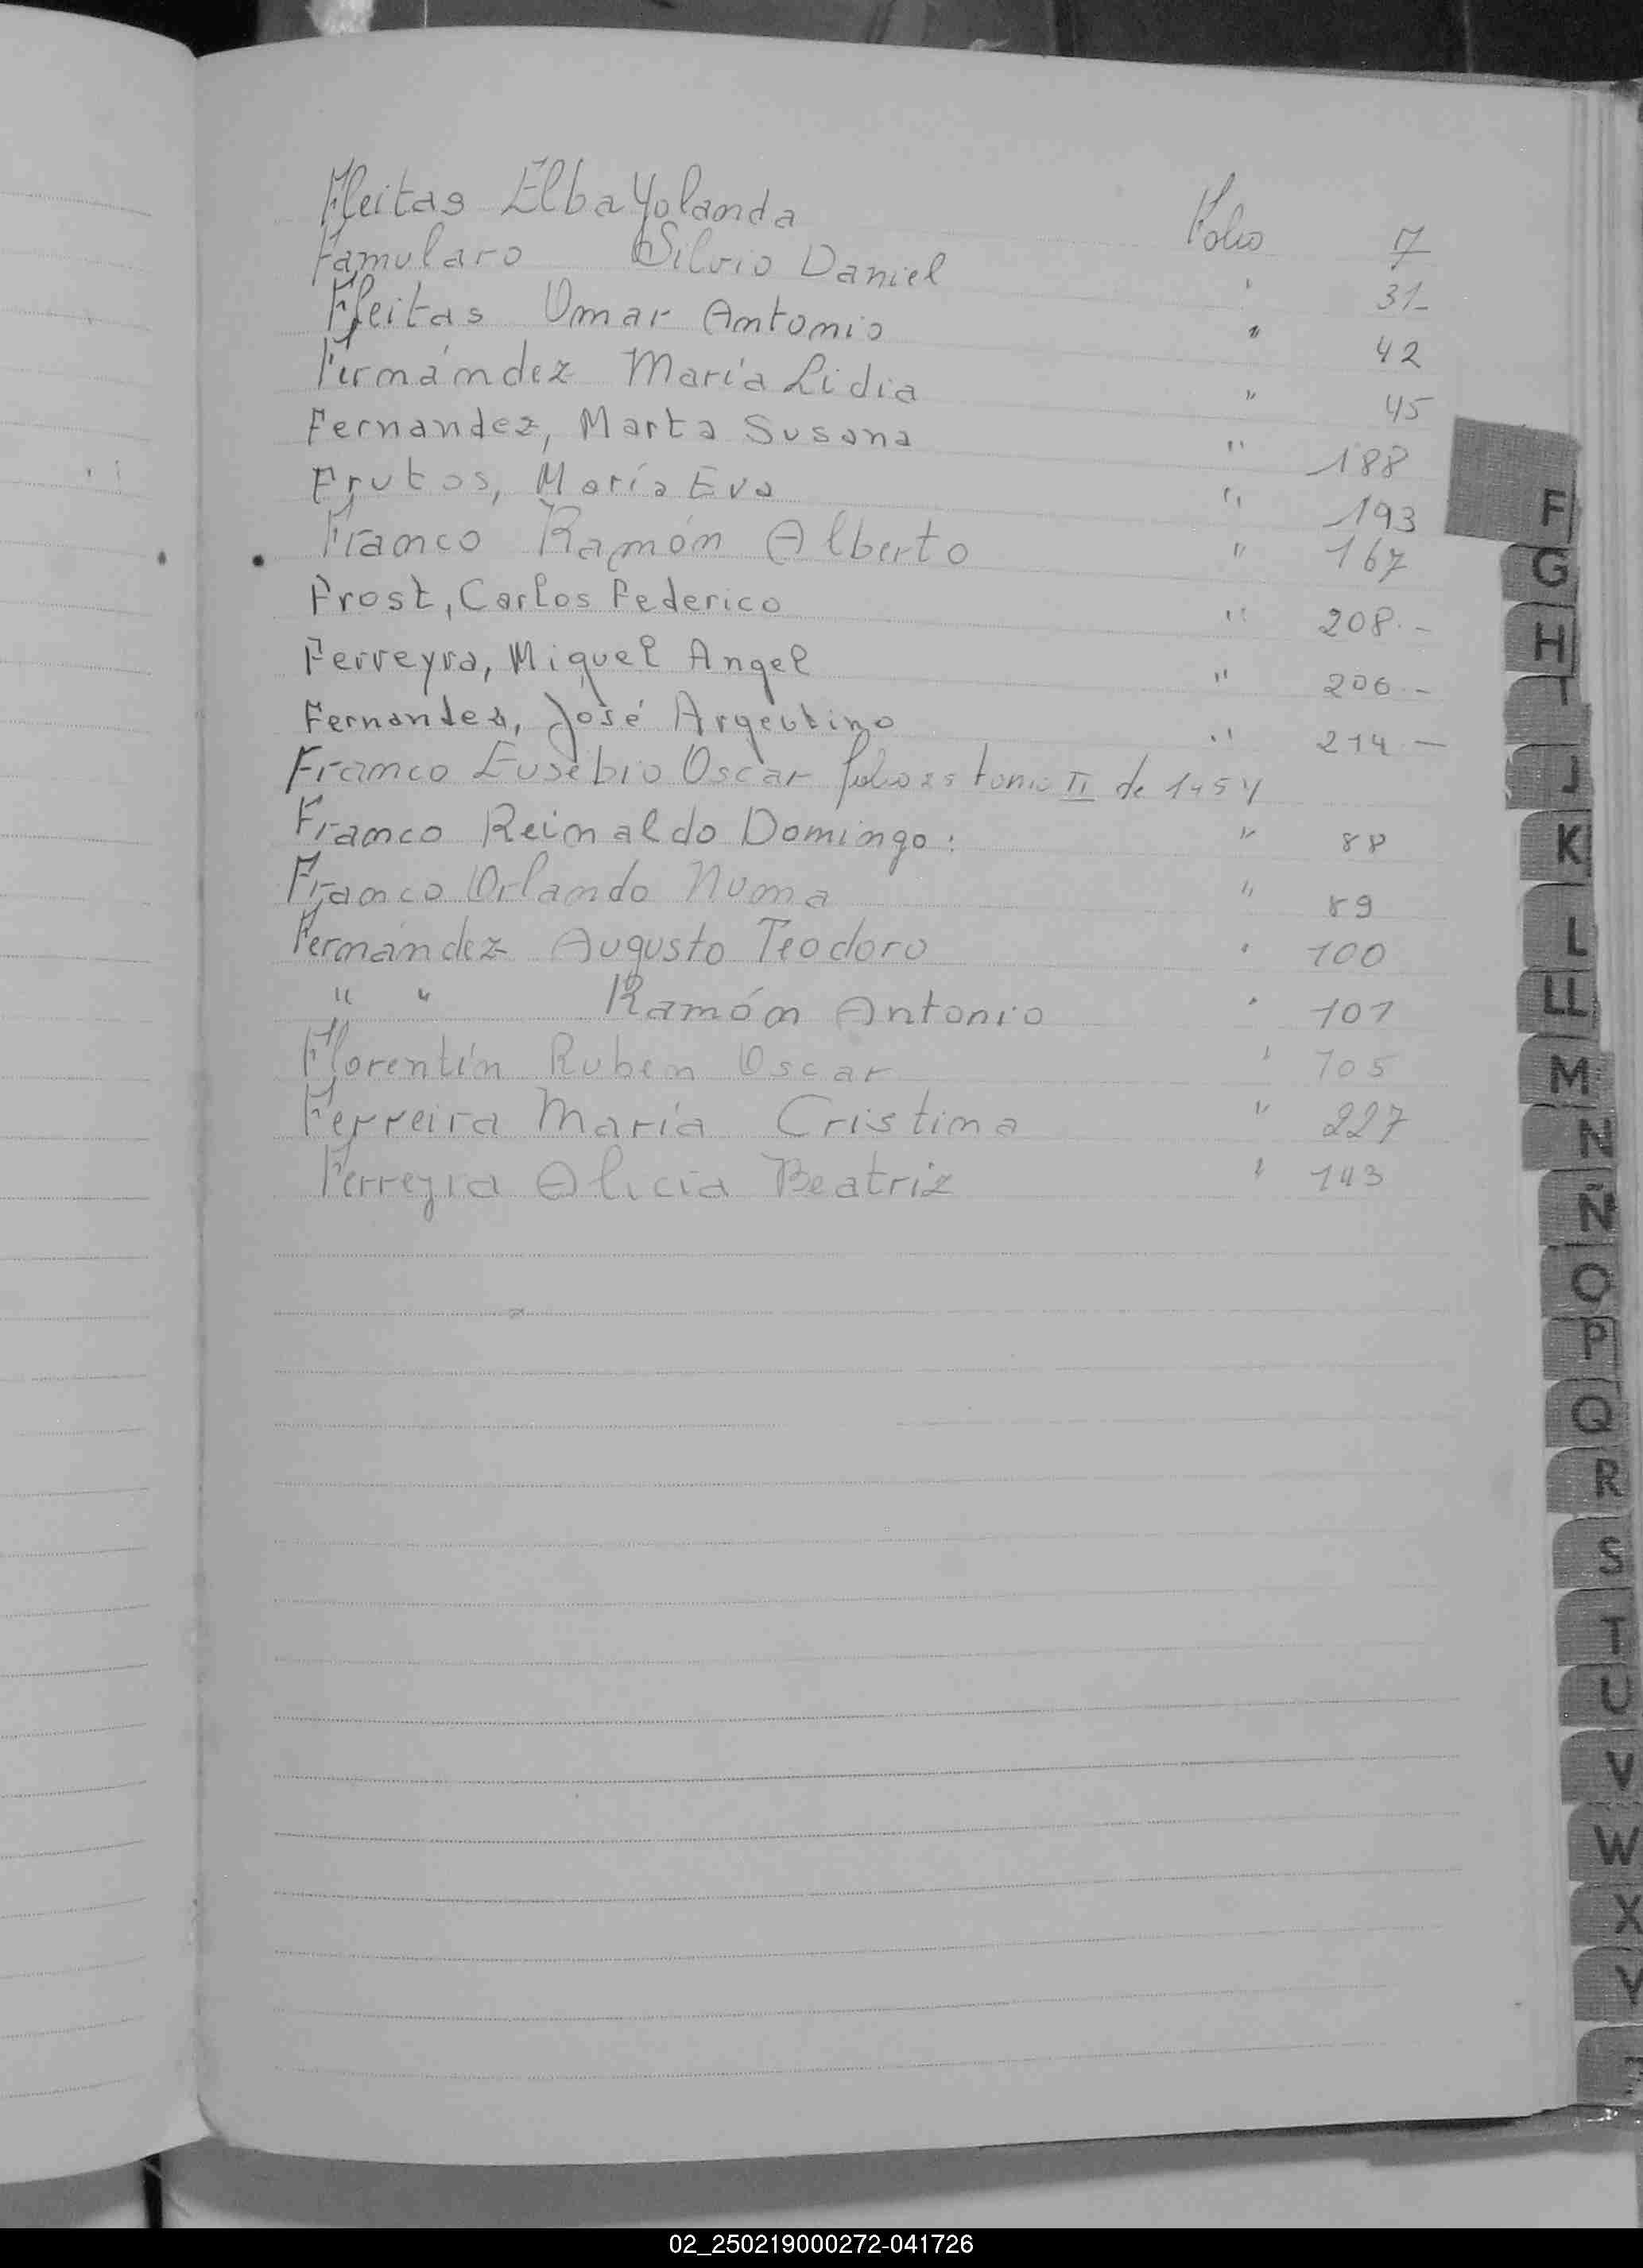 Fleitas Elba Yolanda Folio 7
Famularo Silvio Daniel " 31-
Fleitas Omar Antonio " 42
Fernández María Lidia " 45
Fernandez, Marta Susana " 188
Frutos, María Eva " 193
Franco Ramón Alberto " 167
Frost, Carlos Federico " 208.-
Ferreyra, Miguel Angel " 206.-
Fernandez, José Argentino " 214.-
Franco Eusebio Oscar folio tomo II de 1954
Franco Reinaldo Domingo: " 88
Franco Orlando Numa " 89
Fernández Augusto Teodoro " 100
" " Ramón Antonio " 101
Florentín Ruben Oscar " 105
Ferreira María Cristina " 227
Ferreyra Alicia Beatriz " 143
F
G
H
I
J
K
L
LL
M
N
Ñ
O
P
Q
R
S
T
U
V
W
X
Y
02_250219000272-041726